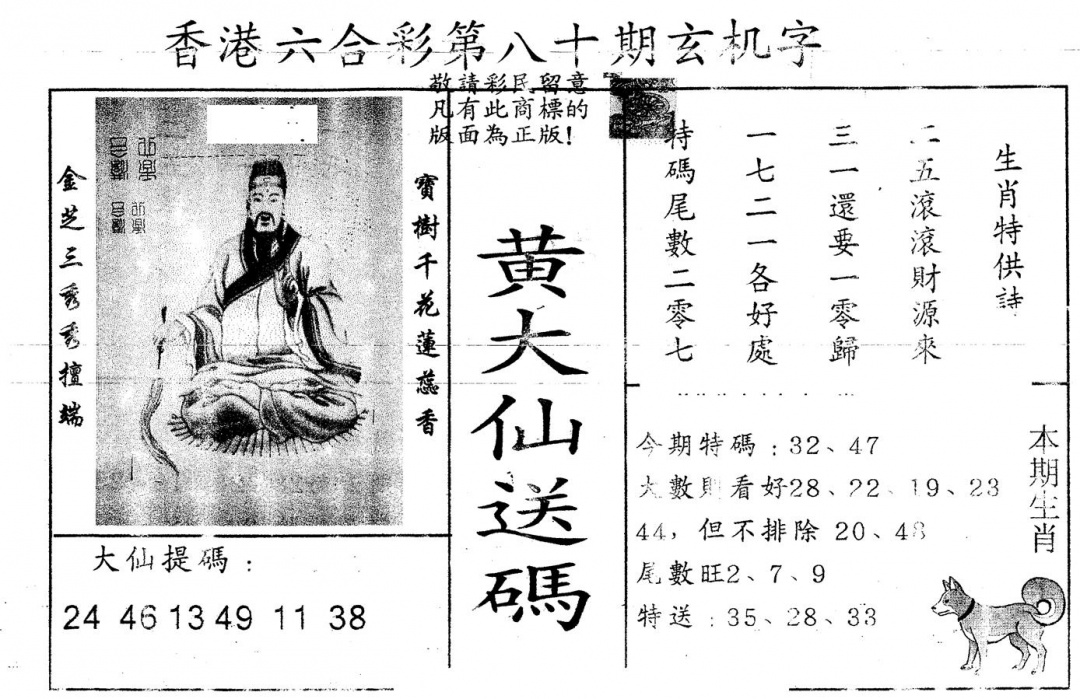 香港六合彩第八十期玄机字
敬請彩民留意
凡有此商標的
版面為正版!
金芝三秀秀擅端
寶樹千花蓮蕊香
黄大仙送碼
生肖特供詩
二五滾滾財源來
三一還要一零歸
一七二一各好處
特碼尾數二零七
大仙提碼:
24 46 13 49 11 38
今期特碼:32、47
大數則看好28、22、19、23
44，但不排除 20、48
尾數旺2、7、9
特送:35、28、33
本期生肖